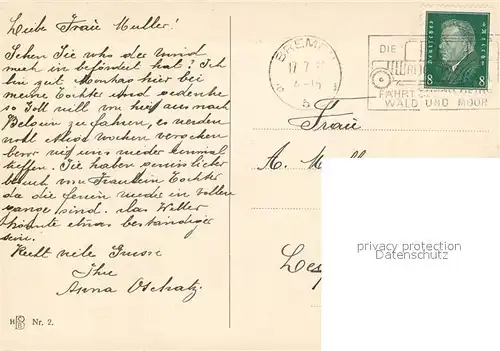 Liebe Frau Muller!
Sehen Sie was der Wind
mich in befördert hat? Ich
bin seit Montag hier bei
meine Tochter und gedenke
so Gott will von hier aus nach
Belgien zu fahren, es werden
wohl einige Wochen verstehen
bevor wir uns wieder einmal
treffen. Sie haben gewiss lieber
besuch von Fraulein Tochter
da die ferien wieder in vollem
gange sind. das Wetter
könnte etwas beständiger
sein.
Recht viele Grusse
Ihre
Anna Oschatz.
Nr. 2.
BREMEN
17 7
5
DIE
FAHRT DURCH HEIDE
WALD UND MOOR
Deutsches Reich
8 8
Frau
A. M
privacy protection
watermark